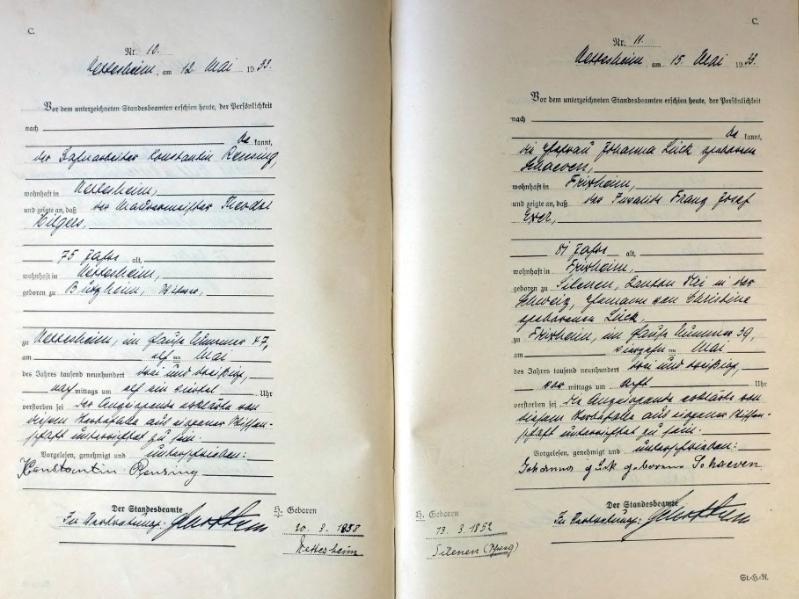 C.
Nr. 10.
Nettersheim, am 12 Mai 1933.
Vor dem unterzeichneten Standesbeamten erschien heute, der Persönlichkeit
nach
be kannt,
der Constantin Rensing,
wohnhaft in Nettersheim,
und zeigte an, daß der Theodor
Hilgers,
75 Jahre alt,
wohnhaft in Nettersheim,
geboren zu
zu Nettersheim, im Hause Nummer 47,
am elften Mai
des Jahres tausend neunhundert drei und dreißig,
nach mittags um elf ein viertel Uhr
verstorben sei. Der Angeigende erklärte von
diesem Sterbefalle aus eigener Wissen-
schaft unterrichtet zu sein.
Vorgelesen, genehmigt und unterschrieben:
Konstantin Rensing
Der Standesbeamte
In Vertretung:
H. Geboren
20. 3. 1858
Nettersheim
C.
Nr. 11.
Nettersheim, am 15 Mai 1933.
Vor dem unterzeichneten Standesbeamten erschien heute, der Persönlichkeit
nach
be kannt,
die Ehefrau Johanna Lück geborene
Schaeven,
wohnhaft in Frohnheim,
und zeigte an, daß der Invalide Franz Josef
81 Jahre alt,
wohnhaft in
geboren zu Silenen, Kanton Uri in der
Schweiz, Ehemann von Christine
geborenen Lück,
zu im Hause Nummer 39,
am vierzehn ten Mai
des Jahres tausend neunhundert drei und dreißig,
vor mittags um acht Uhr
verstorben sei. Die Anzeigende erklärte von
diesem Sterbefalle aus eigener Wissen-
schaft unterrichtet zu sein.
Vorgelesen, genehmigt und unterschrieben:
Johanna Lück geborene Schaeven
Der Standesbeamte
In Vertretung:
H. Geboren
13. 3. 1852
Silenen
St.-H.-R.